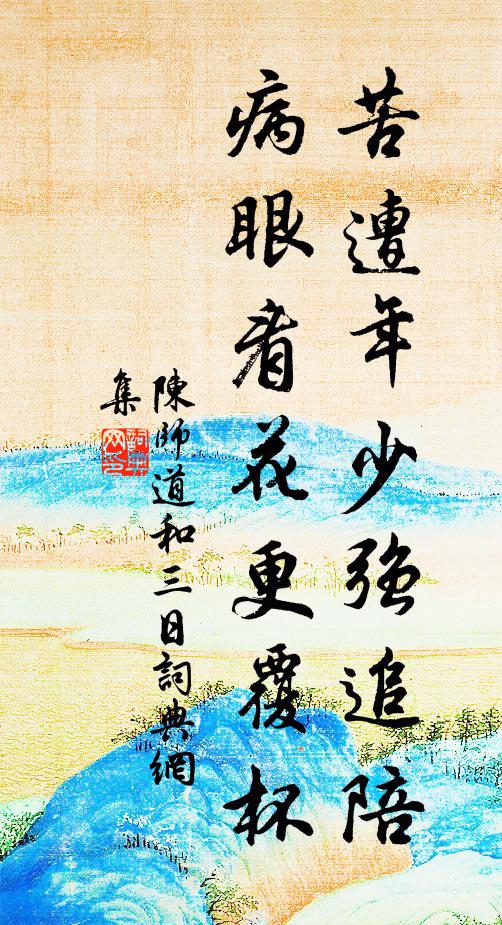 苦遭年少強追陪
病眼看花更覆杯
陳師道和三日詞典網
集